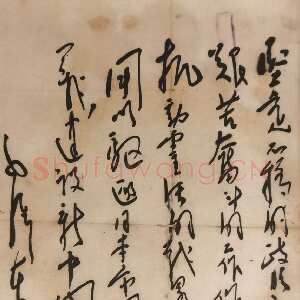 坚定不移的政治
艰苦奋斗的工作作
机动灵活的战略
用以驱逐日本帝
义，建设新中国
毛泽东
Shufawang.CN